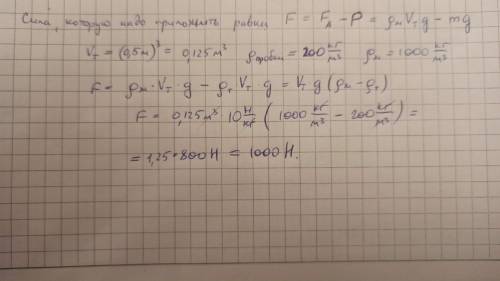 Сила, которую надо приложить равна F = F_A - P = ρ_м V_т g - mg
V_т = (0,5м)³ = 0,125 м³ ρ_пробки = 200 кг/м³ ρ_м = 1000 кг/м³
F = ρ_м · V_т · g - ρ_т V_т g = V_т g (ρ_м - ρ_т)
F = 0,125 м³ · 10 Н/кг ( 1000 кг/м³ - 200 кг/м³ ) =
= 1,25 * 800 Н = 1000 Н.